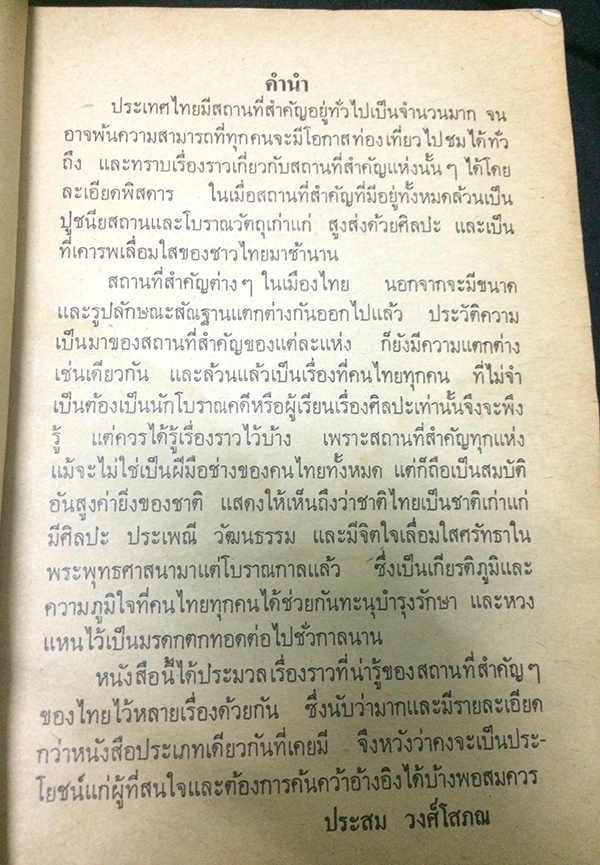 คำนำ
ประเทศไทยมีสถานที่สำคัญอยู่ทั่วไปเป็นจำนวนมาก จน
อาจพ้นความสามารถที่ทุกคนจะมีโอกาสท่องเที่ยวไปชมได้ทั่ว
ถึง และทราบเรื่องราวเกี่ยวกับสถานที่สำคัญแห่งนั้น ๆ ได้โดย
ละเอียดพิสดาร ในเมื่อสถานที่สำคัญที่มีอยู่ทั้งหมดล้วนเป็น
ปูชนียสถานและโบราณวัตถุเก่าแก่ สูงส่งด้วยศิลปะ และเป็น
ที่เคารพเลื่อมใสของชาวไทยมาช้านาน
สถานที่สำคัญต่าง ๆ ในเมืองไทย นอกจากจะมีขนาด
และรูปลักษณะสัณฐานแตกต่างกันออกไปแล้ว ประวัติความ
เป็นมาของสถานที่สำคัญของแต่ละแห่ง ก็ยังมีความแตกต่าง
เช่นเดียวกัน และล้วนแล้วเป็นเรื่องที่คนไทยทุกคน ที่ไม่จำ
เป็นต้องเป็นนักโบราณคดีหรือผู้เรียนเรื่องศิลปะเท่านั้นจึงจะพึง
รู้ แต่ควรได้รู้เรื่องราวไว้บ้าง เพราะสถานที่สำคัญทุกแห่ง
แม้จะไม่ใช่เป็นฝีมือช่างของคนไทยทั้งหมด แต่ก็ถือเป็นสมบัติ
อันสูงค่ายิ่งของชาติ แสดงให้เห็นถึงว่าชาติไทยเป็นชาติเก่าแก่
มีศิลปะ ประเพณี วัฒนธรรม และมีจิตใจเลื่อมใสศรัทธาใน
พระพุทธศาสนามาแต่โบราณกาลแล้ว ซึ่งเป็นเกียรติภูมิและ
ความภูมิใจที่คนไทยทุกคนได้ช่วยกันทะนุบำรุงรักษา และหวง
แหนไว้เป็นมรดกตกทอดต่อไปชั่วกาลนาน
หนังสือนี้ได้ประมวลเรื่องราวที่น่ารู้ของสถานที่สำคัญ ๆ
ของไทยไว้หลายเรื่องด้วยกัน ซึ่งนับว่ามากและมีรายละเอียด
กว่าหนังสือประเภทเดียวกันที่เคยมี จึงหวังว่าคงจะเป็นประ-
โยชน์แก่ผู้ที่สนใจและต้องการค้นคว้าอ้างอิงได้บ้างพอสมควร
ประสม วงศ์โสภณ